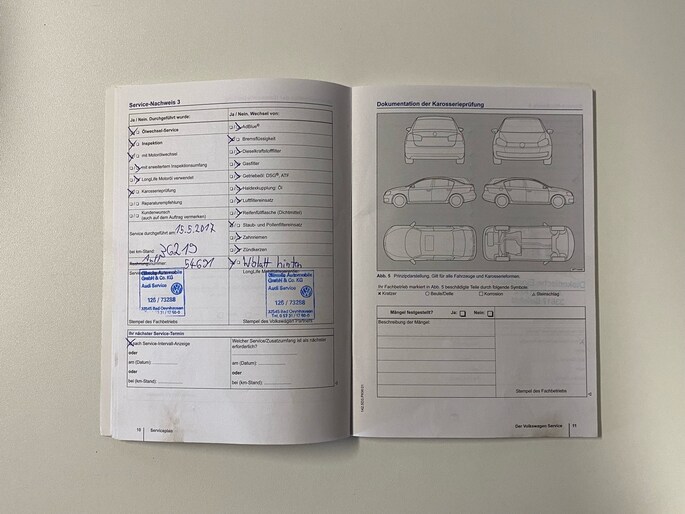 Service-Nachweis 3
Ja / Nein, Durchgeführt wurde:
Ölwechsel-Service
Inspektion
mit Motorölwechsel
mit erweitertem Inspektionsumfang
LongLife Motoröl verwendet
Karosserieprüfung
Reparaturempfehlung
Kundenwunsch
(auch auf dem Auftrag vermerken)
Service durchgeführt am 15.5.2017
bei km-Stand:
54691
GmbH & Co. KG
Audi Service
125 / 73258
Stempel des Fachbetriebs
Ja / Nein, Wechsel von:
AdBlue®
Bremsflüssigkeit
Dieselkraftstofffilter
Gasfilter
Getriebeöl DSG®, ATF
Haldexkupplung Öl
Luftfiltereinsatz
Reifenfüllflasche (Dichtmittel)
Staub- und Pollenfiltereinsatz
Zahnriemen
Zündkerzen
Wblatt hinten
GmbH & Co. KG
Audi Service
125 / 73258
Stempel des Volkswagen Partners
Ihr nächster Service-Termin
nach Service-Intervall-Anzeige
oder
am (Datum):
oder
bei (km-Stand):
Welcher Service/Zusatzumfang ist als nächstes
erforderlich?
am (Datum):
oder
bei (km-Stand):
10 Serviceplan
Dokumentation der Karosserieprüfung
Abb. 5 Prinzipdarstellung. Gilt für alle Fahrzeuge und Karosserieformen.
Ihr Fachbetrieb markiert in Abb. 5 beschädigte Teile durch folgende Symbole:
Kratzer Beule/Delle Korrosion Steinschlag
Mängel festgestellt? Ja: Nein:
Beschreibung der Mängel:
Stempel des Fachbetriebs
Der Volkswagen Service 11